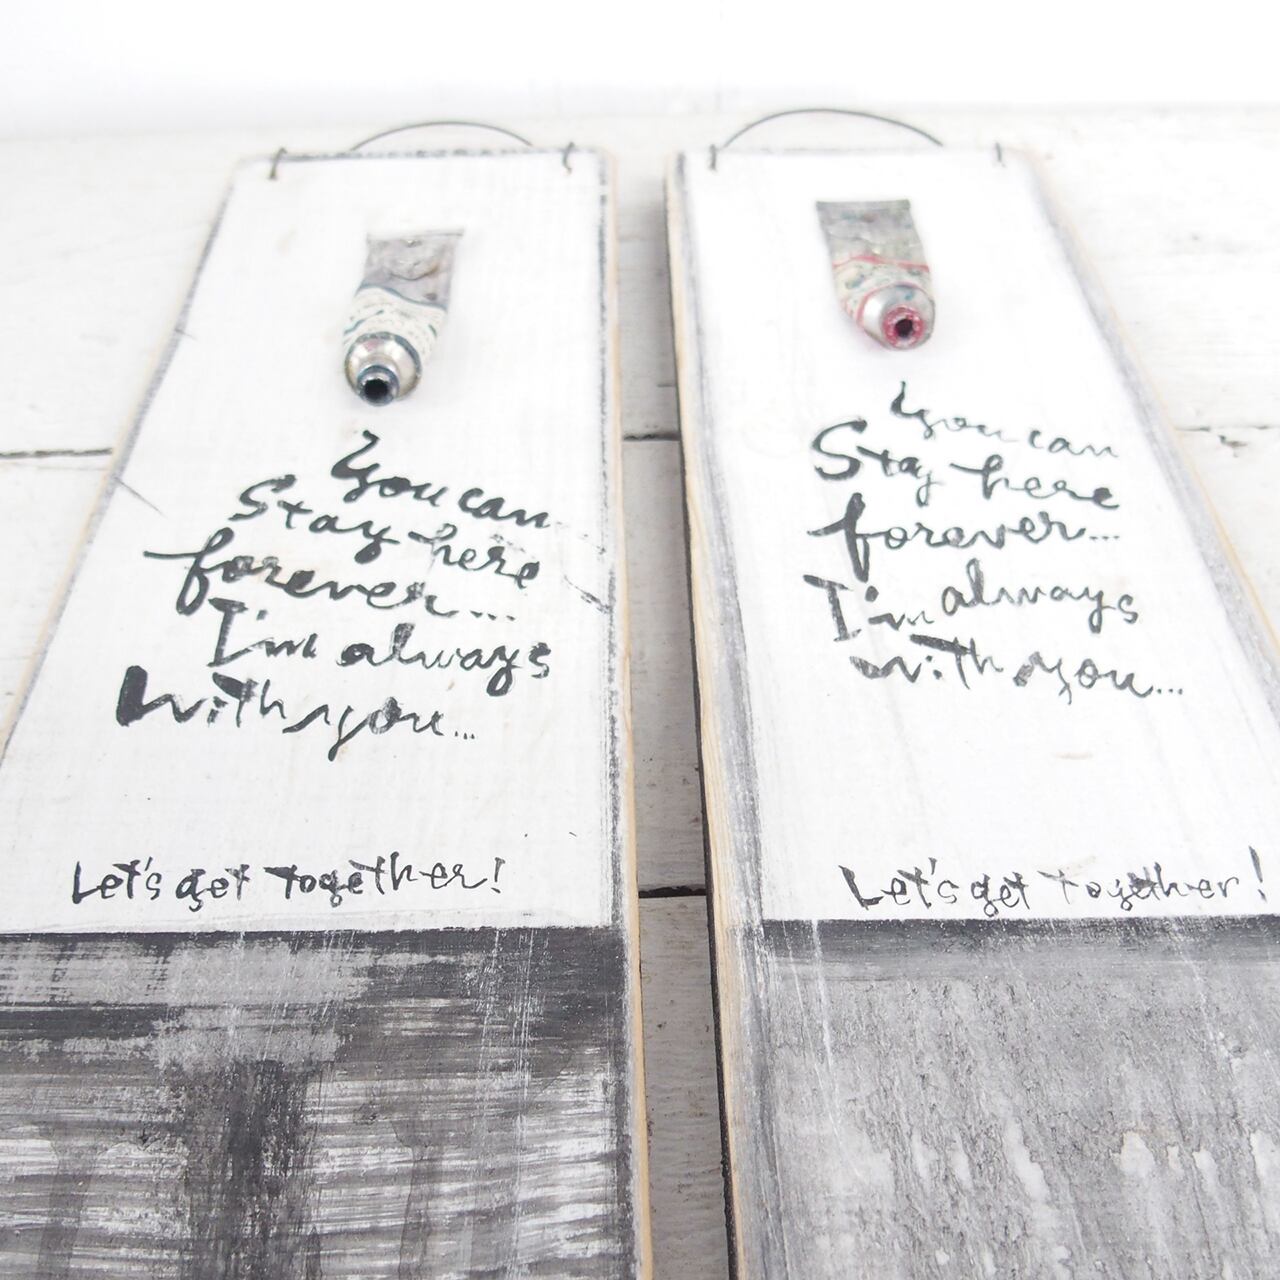 You can
Stay here
forever...
I'm always
with you...
Let's get together!
You can
Stay here
forever...
I'm always
with you...
Let's get together!